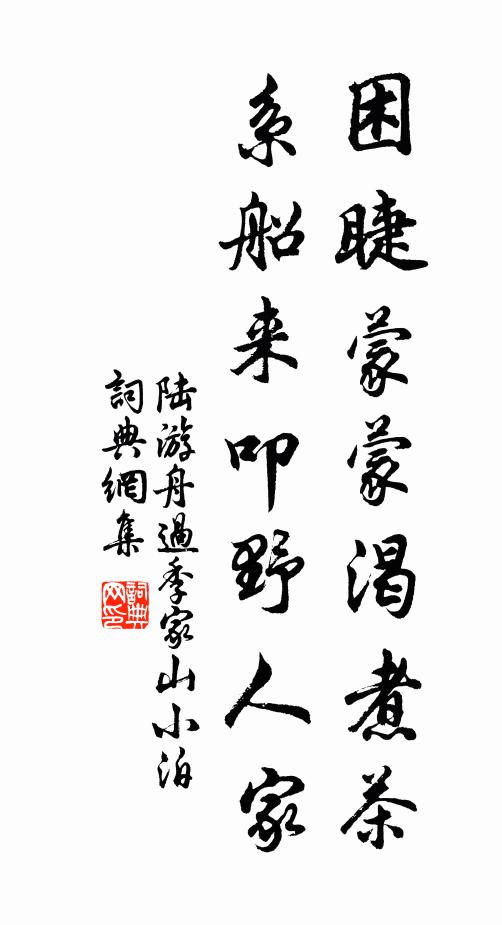 困睫蒙蒙渴煮茶
系船来叩野人家
陆游舟過季家山小泊
詞典網集
詞典网印